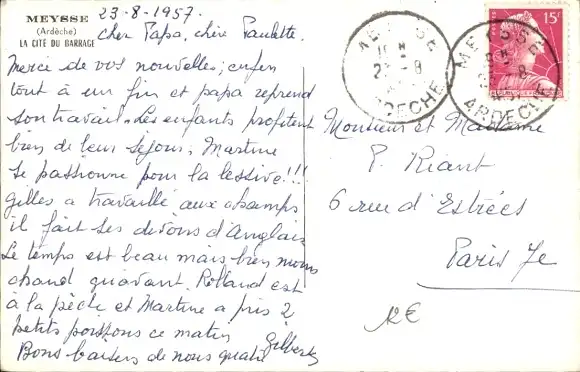 MEYSSE
(Ardèche)
LA CITÉ DU BARRAGE
23-8-1957.
Cher Papa, chère Paulette.
Merci de vos nouvelles; enfin
tout à un fin et papa reprend
son travail. Les enfants profitent
bien de leur séjour. Martine
se passionne pour la lessive!!!
Gilles a travaillé aux champs
il fait ses devoirs d'Anglais
Le temps est beau mais bien moins
chaud qu'avant. Rolland est
à la pêche et Martine a pris 2
petits poissons ce matin
Bons baisers de nous quatre
Gilberte
MEYSSE
ARDECHE
15F
MEYSSE
ARDECHE
Monsieur et Madame
P. Riant
6 rue d'Estrées
Paris 7e
2€